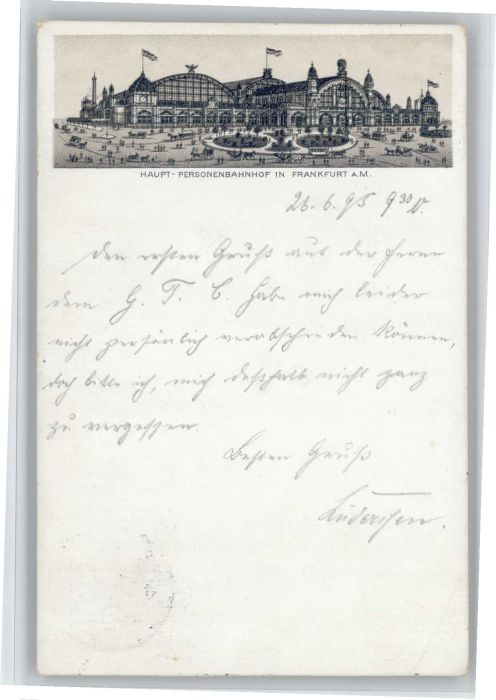 HAUPT-PERSONENBAHNHOF IN FRANKFURT A.M.
26. 6. 95 9³⁰ V.
Den ersten Gruß aus der Ferne
dem G. T. C. Habe mich leider
nicht persönlich verabschieden können,
doch bitte ich, mich deßhalb nicht ganz
zu vergessen.
Besten Gruß
Lüderssen.